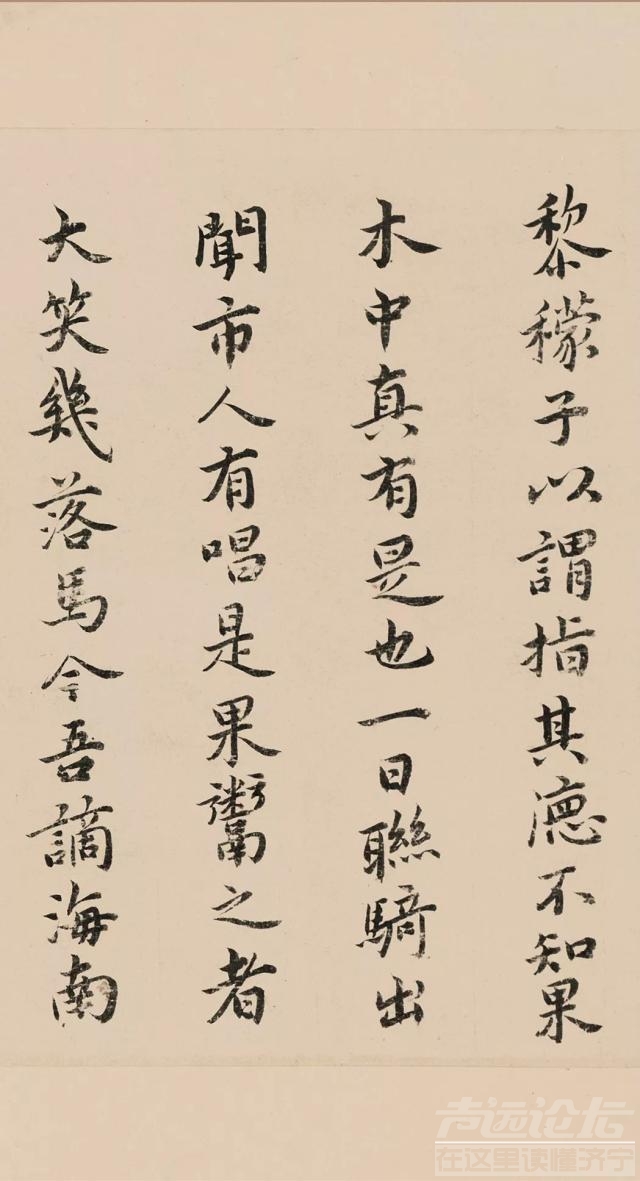 黎檬子以謂指其德不知果
木中真有是也一日聯騎出
聞市人有唱是果鬻之者
大笑幾落馬今吾謫海南
声远论坛
在这里读懂济宁